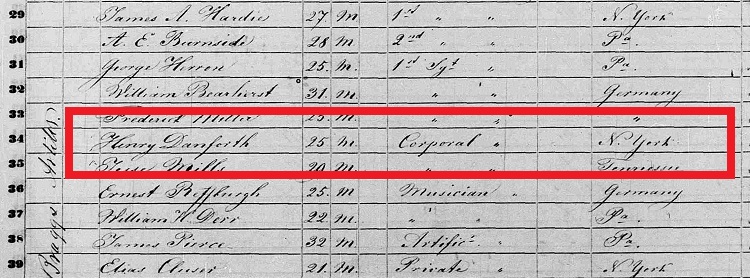 29 James A. Hardie 27. M. 1st " " N. York
30 A. E. Burnside 28 M. 2nd " " Pa.
31 George Herren 25. M. 1st Sgt " Pa.
32 William Bearherst 31. M. " " Germany
33 Frederick Miller 25. M. " " "
34 Henry Danforth 25 M. Corporal " N. York
35 Mills 20 M. " " Tennessee
36 Ernest 25. M. Musician " Germany
37 William H. Dorr 22. M. " " Pa.
38 James Pierce 32 M. Artific. " Pa.
39 Elias 21. M. Private " N. York
Braggs